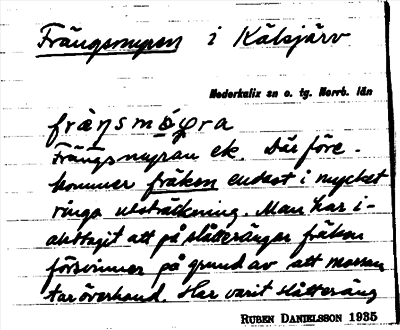 Frängsmyren i Kälsjärv
Nederkalix sn o. tg. Norrb. län
fräŋsmýra
Frängsmyran ek. Där före-
kommer fräken endast i mycket
ringa utsträckning. Man har i-
akttagit att på slåtterängar fräken
försvinner på grund av att mossan
tar överhand. Har varit slåtteräng
RUBEN DANIELSSON 1935